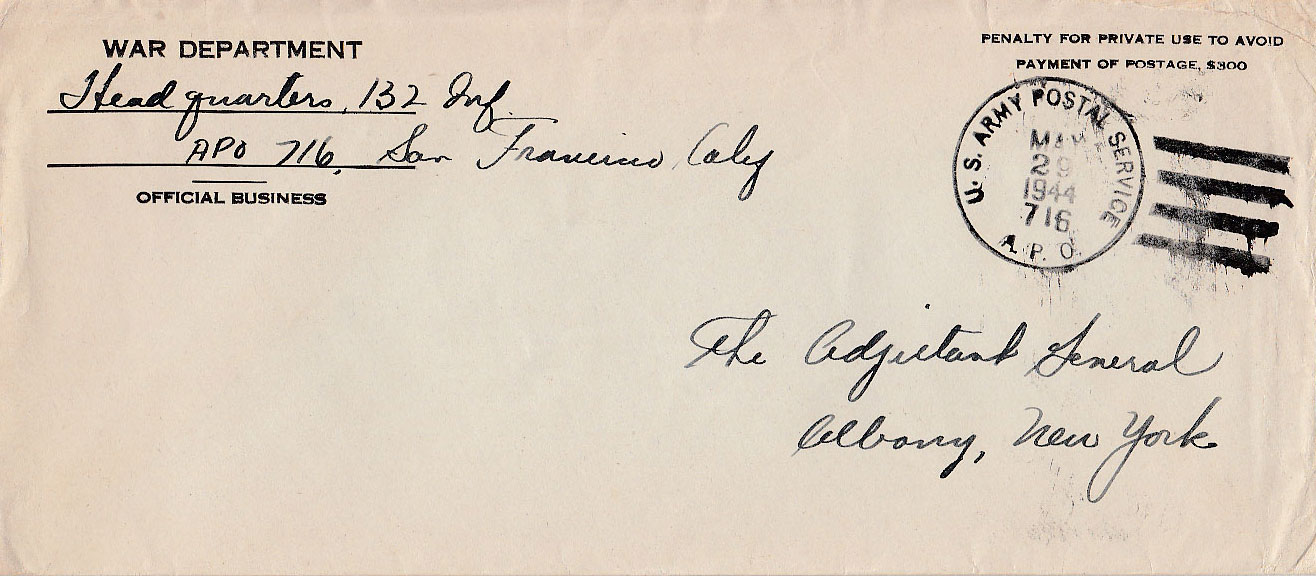 WAR DEPARTMENT
Headquarters, 132 Inf.
APO 716, San Francisco Calif
OFFICIAL BUSINESS
PENALTY FOR PRIVATE USE TO AVOID
PAYMENT OF POSTAGE, $300
U. S. ARMY POSTAL SERVICE
MAY
29
1944
716
A. P. O.
The Adjutant General
Albany, New York